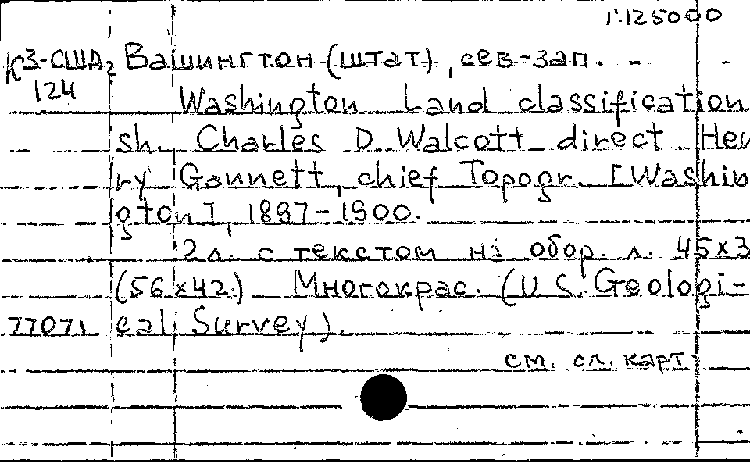 1:125000
К3-США₂ Вашингтон (штат), сев-зап.
124
Washington Land classification
sh. Charles D. Walcott direct Hen
ry Gannett, chief Topogr. [Washin
gton], 1897-1900.
2л. с текстом на обор. л. 45х3
(56х42.) Многокрас. (U.S. Geologi-
77071 cal Survey).
см. сл. карт